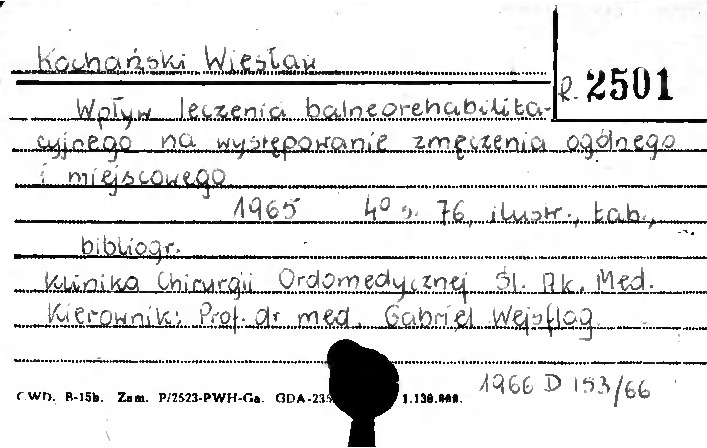 Kochański Wiesław
R. 2501
Wpływ leczenia balneorehabilita-
cyjnego na występowanie zmęczenia ogólnego
i miejscowego
1965 4° s. 76, ilustr., tab.,
bibliogr.
Klinika Chirurgii Ordomedycznej Śl. Ak. Med.
Kierownik: Prof. dr med. Gabriel Wejsflog
1966 D 153/66
CWD. B-15b. Zam. P/2523-PWH-Ga. GDA-235 1.130.000.